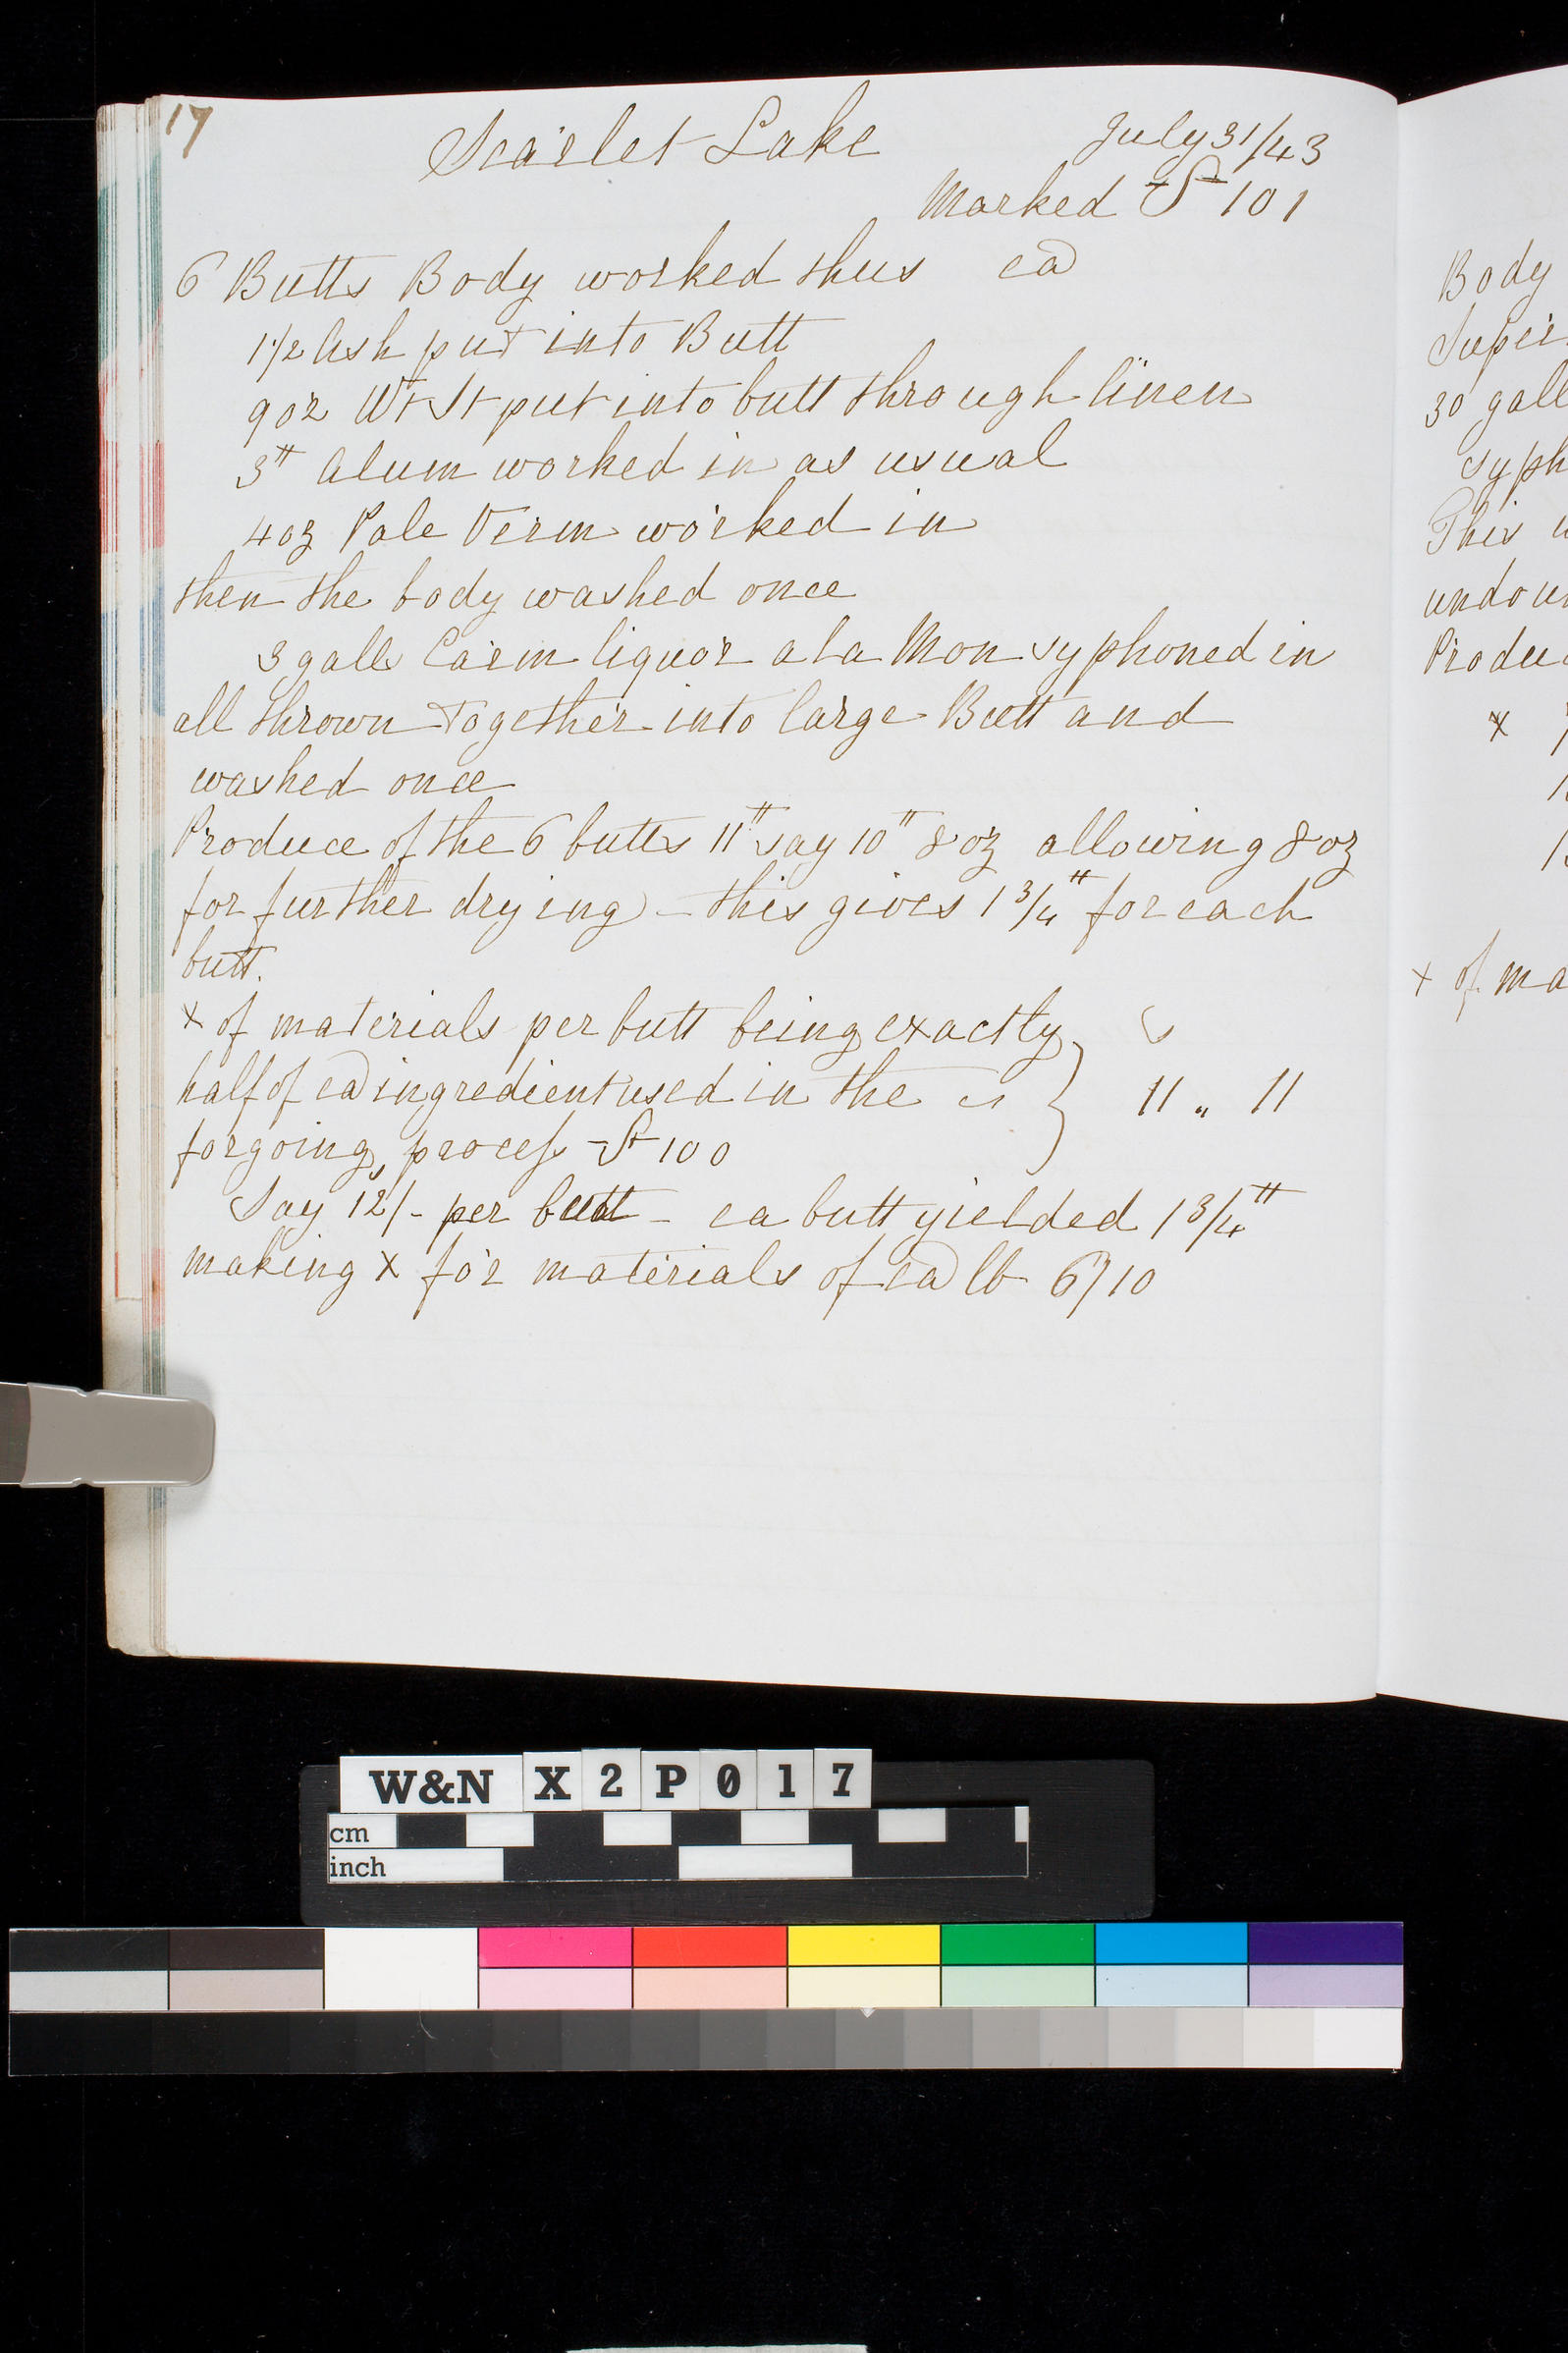 17
Scarlet Lake
July 31/43
Marked S 101
6 Butts Body worked thus ea
1 1/2 Ash put into Butt
9 oz Wt St put into butt through linen
3# Alum worked in as usual
4 oz Pale Verm worked in
then the body washed once
3 galls Carm liquor a la Mon syphoned in
all thrown together into large Butt and
washed once
Produce of the 6 butts 11# say 10# 8 oz allowing 8 oz
for further drying - this gives 1 3/4# for each
butt.
x of materials per butt being exactly
half of ea ingredient used in the } 11 " 11
forgoing process S 100
Say 12/- per butt - ea butt yielded 1 3/4#
making x for materials of ea lb 6/10
Body
30 gall
syph
This
Produ
x
x of ma
W&N X 2 P 0 1 7
cm
inch